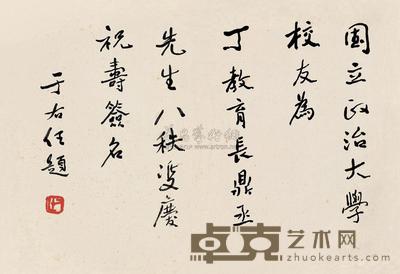 國立政治大學
校友為
丁教育長鼎丞
先生八秩双慶
祝壽簽名
于右任題
卓克艺术网
www.zhuokearts.com